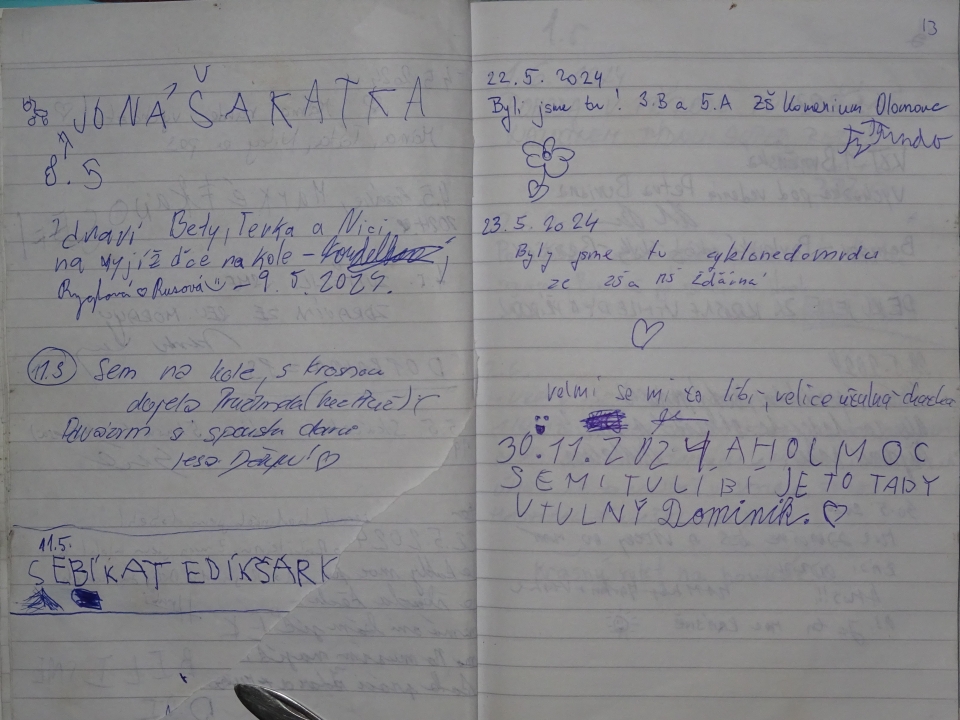 JONÁŠ A KATKA
8.5
Zdraví Bety, Terka a Nici
na vyjížďce na kole -
Rusová 9. 5. 2024.
11.5 Sem na kole, s krosnou
dojela
si spousta
lesa ♡
11.5.
SEBÍK AT EDÍK ŠÁRK
13
22.5. 2024
Byli jsme tu! 3.B a 5.A ZŠ Komenium Olomouc
23.5. 2024
Byly jsme tu cyklonedomrdu
ze ZŠ a MŠ Ždárná
♡
velmi se mi to líbí, velice útulná
30.11.2024 AHOJ MOC
SE MI TU LÍBÍ JE TO TADY
ÚTULNÝ Dominik. ♡